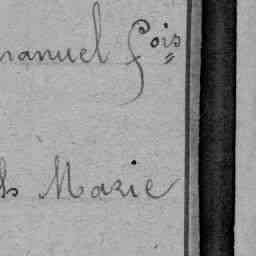 manuel Fois
ls Marie